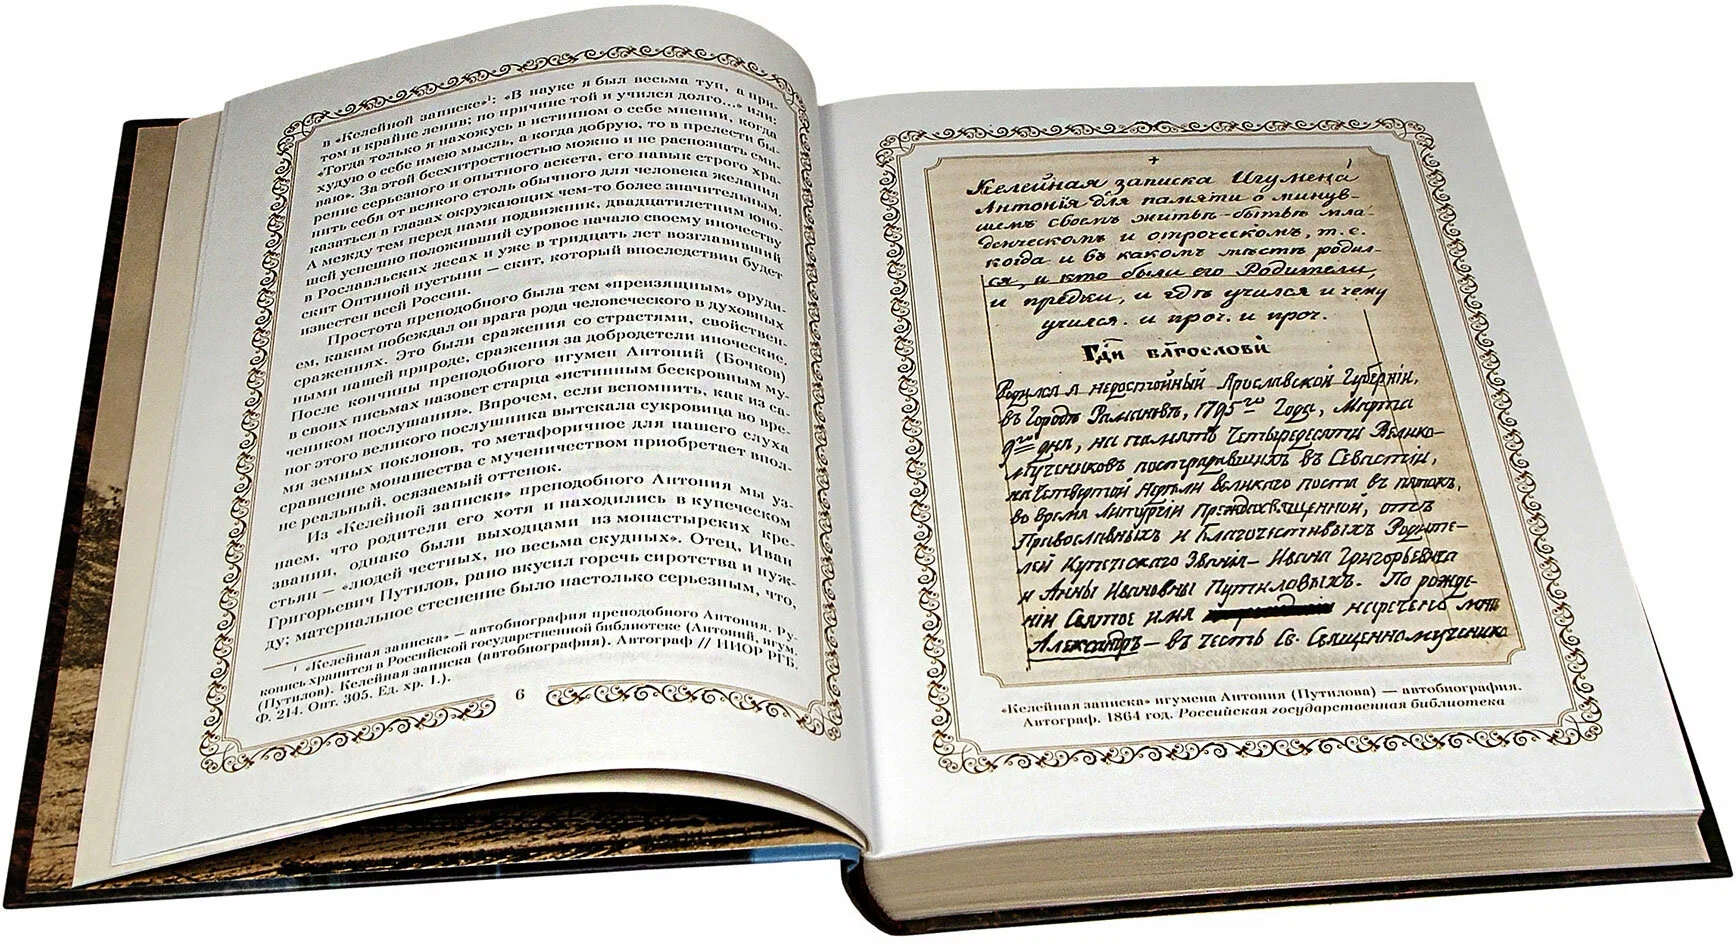 в «Келейной записке»¹: «В науке я был весьма туп, а при-
том и крайне ленив; по причине той и учился долго...» или:
«Тогда только я нахожусь в истинном о себе мнении, когда
худую о себе имею мысль, а когда добрую, то в прелести бы-
ваю». За этой бесхитростностью можно и не распознать сми-
рение серьезного и опытного аскета, его навык строго хра-
нить себя от всякого столь обычного для человека желания
казаться в глазах окружающих чем-то более значительным.
А между тем перед нами подвижник, двадцатилетним юно-
шей успешно положивший суровое начало своему иночеству
в Рославльских лесах и уже в тридцать лет возглавивший
скит Оптиной пустыни — скит, который впоследствии будет
известен всей России.
Простота преподобного была тем «преизящным» оруди-
ем, каким побеждал он врага рода человеческого в духовных
сражениях. Это были сражения со страстями, свойствен-
ными нашей природе, сражения за добродетели иноческие.
После кончины преподобного игумен Антоний (Бочков)
в своих письмах назовет старца «истинным бескровным му-
чеником послушания». Впрочем, если вспомнить, как из са-
пог этого великого послушника вытекала сукровица во вре-
мя земных поклонов, то метафоричное для нашего слуха
сравнение монашества с мученичеством приобретает впол-
не реальный, осязаемый оттенок.
Из «Келейной записки» преподобного Антония мы уз-
наем, что родители его хотя и находились в купеческом
звании, однако были выходцами из монастырских кре-
стьян — «людей честных, но весьма скудных». Отец, Иван
Григорьевич Путилов, рано вкусил горечь сиротства и нуж-
ду; материальное стеснение было настолько серьезным, что,
¹ «Келейная записка» — автобиография преподобного Антония. Ру-
копись хранится в Российской государственной библиотеке (Антоний, игум.
(Путилов). Келейная записка (автобиография). Автограф // НИОР РГБ.
Ф. 214. Опт. 305. Ед. хр. 1.).
6
1
Келейная записка Игумена
Антонія для памяти о минув-
шемъ своемъ житьѣ-бытьѣ мла-
денческомъ и отроческомъ, т. е.
когда и въ какомъ мѣстѣ родил-
ся, и кто были его Родители,
и предки, и гдѣ учился и чему
учился. и проч. и проч.
Гди блгослови
Родился я недостойный Ярославской Губерніи,
въ Городѣ Рамановѣ, 1795го Года, Марта
9го дня, на память Четыредесяти Велико-
мучениковъ пострадавшихъ въ Севастіи,
на Четвертой недѣли великаго поста въ пятокъ,
во время Литургіи Преждеосвященной, отъ
Православныхъ и Благочестивыхъ Родите-
лей Купеческаго Званія — Ивана Григорьевича
и Анны Ивановны Путиловыхъ. По рожде-
ніи Святое имя наречено мнѣ
Александръ — въ честь Св. Священномученика
«Келейная записка» игумена Антония (Путилова) — автобиография.
Автограф. 1864 год. Российская государственная библиотека